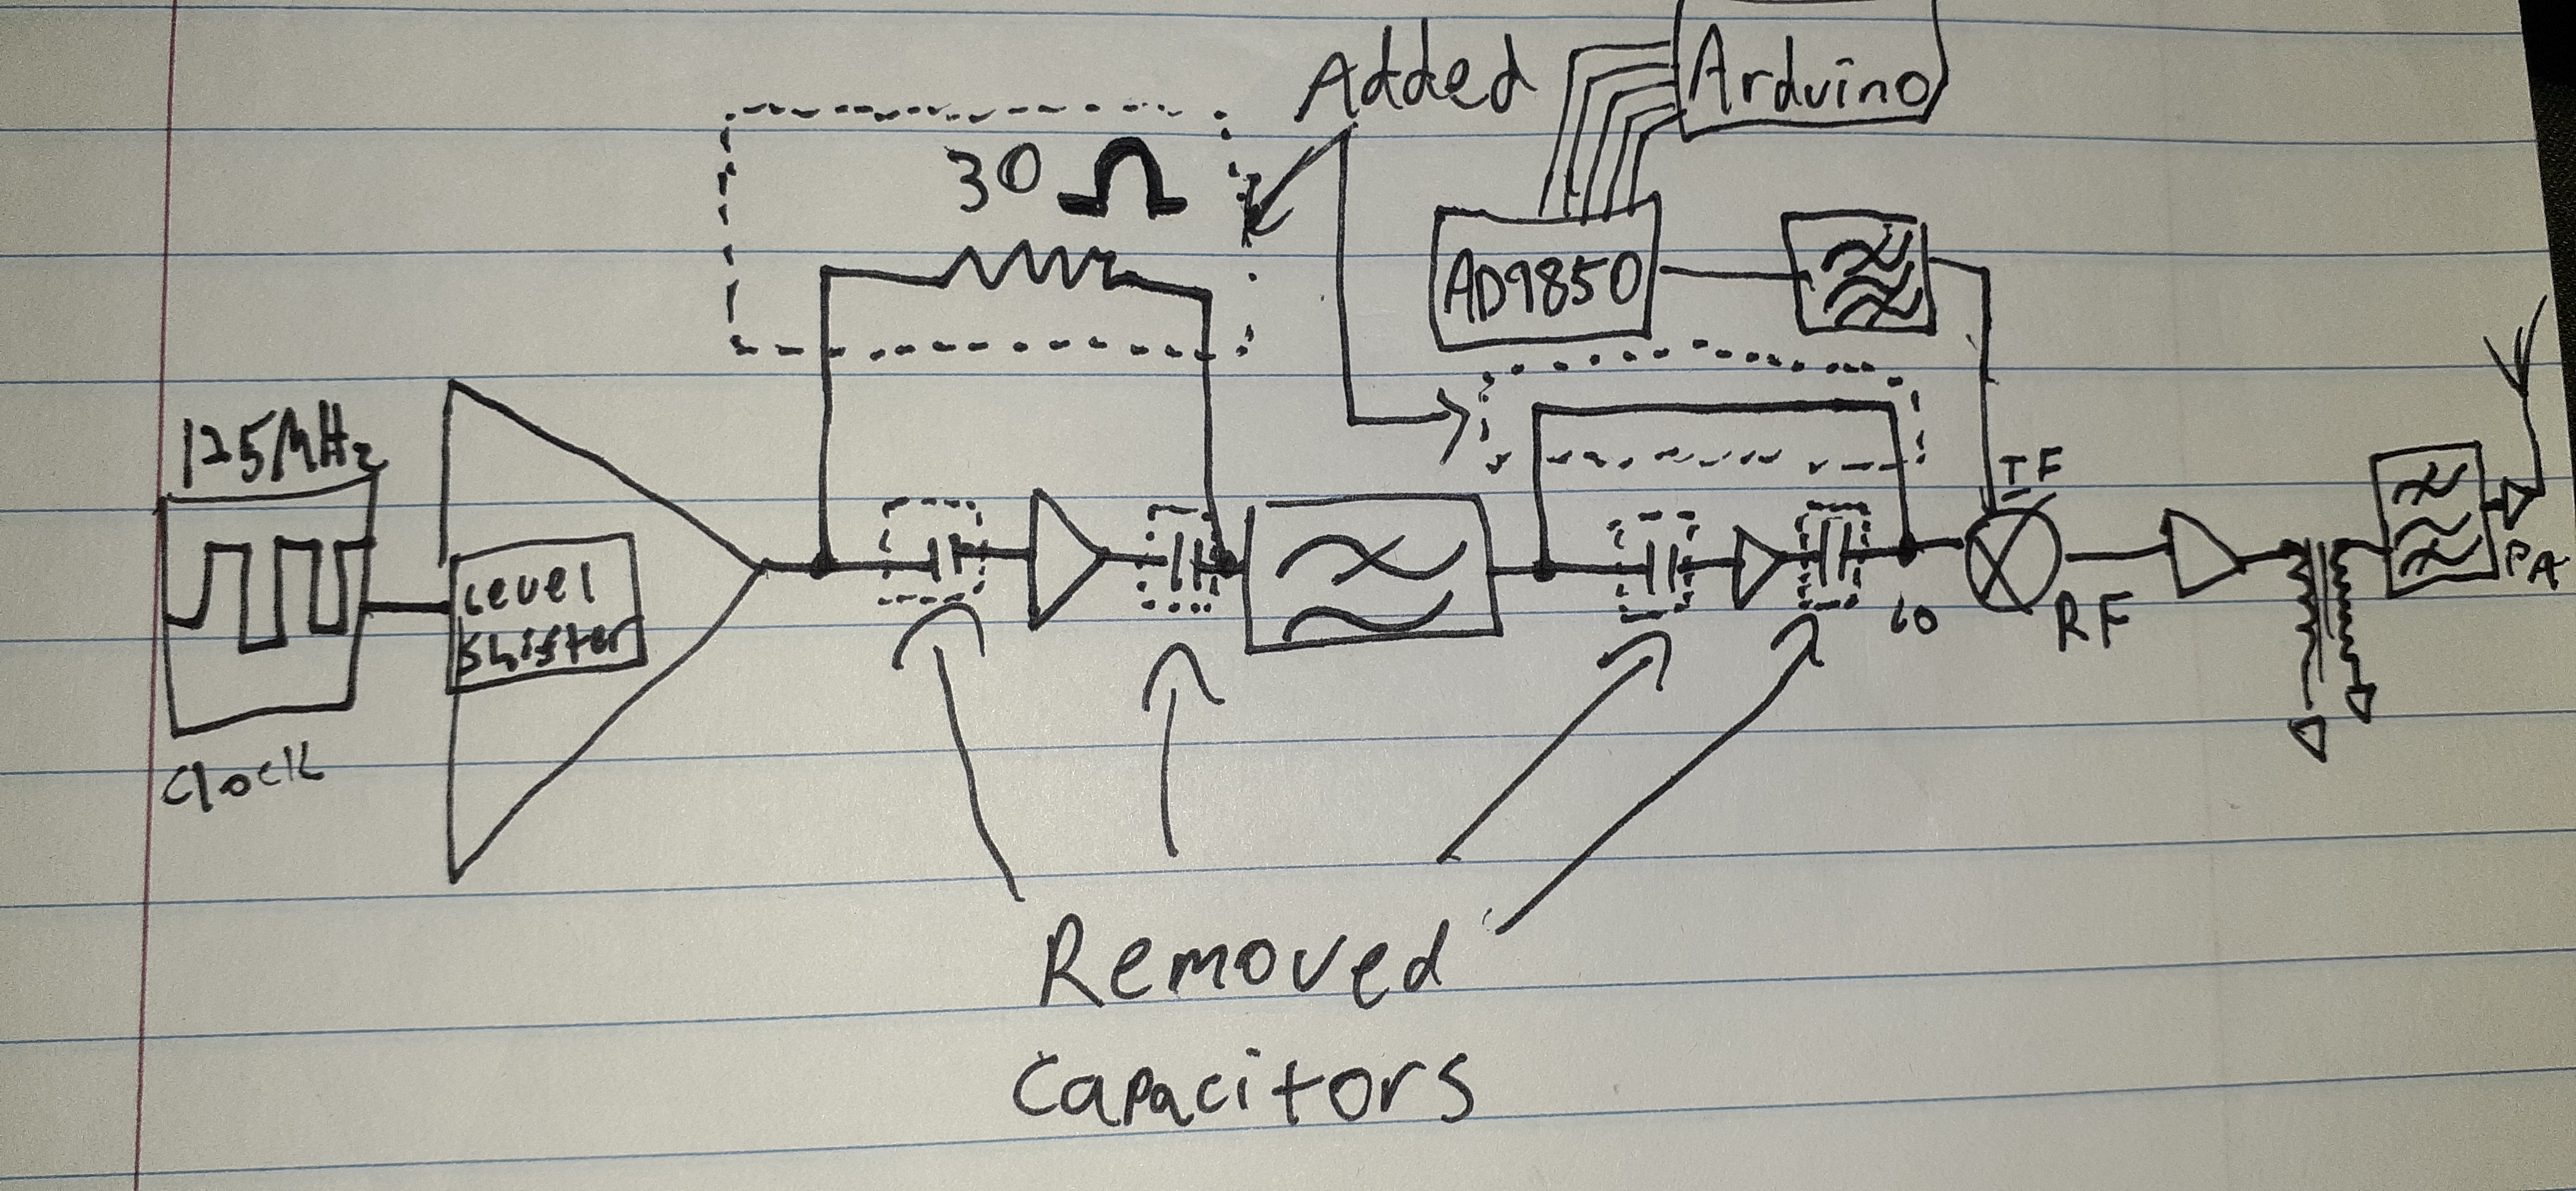 Added
Arduino
30 Ω
AD9850
125MHz
Level
Shifter
IF
LO
RF
PA
Clock
Removed
Capacitors